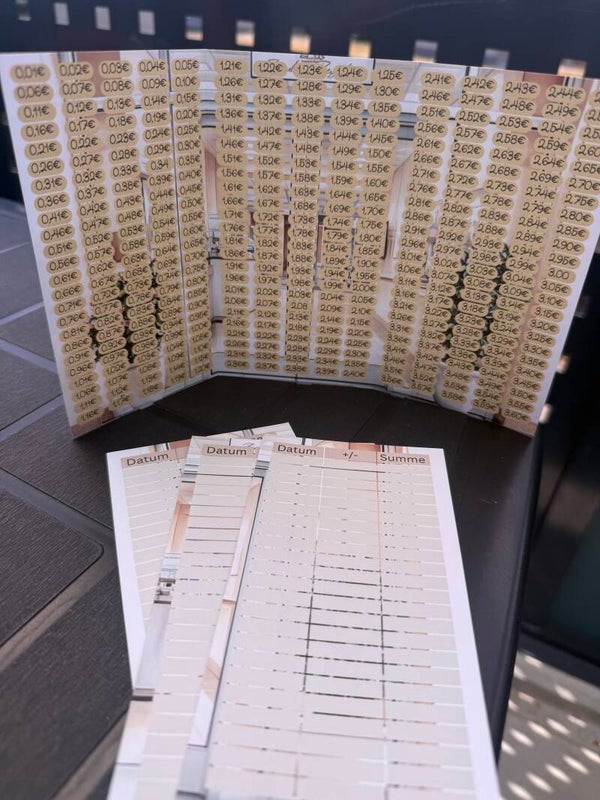 0.01€ 0.02€ 0.03€ 0.04€ 0.05€
0.06€ 0.07€ 0.08€ 0.09€ 0.10€
0.11€ 0.12€ 0.13€ 0.14€ 0.15€
0.16€ 0.17€ 0.18€ 0.19€ 0.20€
0.21€ 0.22€ 0.23€ 0.24€ 0.25€
0.26€ 0.27€ 0.28€ 0.29€ 0.30€
0.31€ 0.32€ 0.33€ 0.34€ 0.35€
0.36€ 0.37€ 0.38€ 0.39€ 0.40€
0.41€ 0.42€ 0.43€ 0.44€ 0.45€
0.46€ 0.47€ 0.48€ 0.49€ 0.50€
0.51€ 0.52€ 0.53€ 0.54€ 0.55€
0.56€ 0.57€ 0.58€ 0.59€ 0.60€
0.61€ 0.62€ 0.63€ 0.64€ 0.65€
0.66€ 0.67€ 0.68€ 0.69€ 0.70€
0.71€ 0.72€ 0.73€ 0.74€ 0.75€
0.76€
0.81€
0.86€
0.91€
0.96€
1.01€
1.21€ 1.22€ 1.23€ 1.24€ 1.25€
1.26€ 1.27€ 1.28€ 1.29€ 1.30€
1.31€ 1.32€ 1.33€ 1.34€ 1.35€
1.36€ 1.37€ 1.38€ 1.39€ 1.40€
1.41€ 1.42€ 1.43€ 1.44€ 1.45€
1.46€ 1.47€ 1.48€ 1.49€ 1.50€
1.51€ 1.52€ 1.53€ 1.54€ 1.55€
1.56€ 1.57€ 1.58€ 1.59€ 1.60€
1.61€ 1.62€ 1.63€ 1.64€ 1.65€
1.66€ 1.67€ 1.68€ 1.69€ 1.70€
1.71€ 1.72€ 1.73€ 1.74€ 1.75€
1.76€ 1.77€ 1.78€ 1.79€ 1.80€
1.81€ 1.82€ 1.83€ 1.84€ 1.85€
1.86€ 1.87€ 1.88€ 1.89€ 1.90€
1.91€ 1.92€ 1.93€ 1.94€ 1.95€
1.96€ 1.97€ 1.98€ 1.99€ 2.00€
2.01€ 2.02€ 2.03€ 2.04€ 2.05€
2.06€ 2.07€ 2.08€ 2.09€ 2.10€
2.11€ 2.12€ 2.13€ 2.14€ 2.15€
2.16€ 2.17€ 2.18€ 2.19€ 2.20€
2.21€ 2.22€ 2.23€ 2.24€ 2.25€
2.26€ 2.27€ 2.28€ 2.29€ 2.30€
2.31€ 2.32€ 2.33€ 2.34€ 2.35€
2.36€ 2.37€ 2.38€ 2.39€ 2.40€
2.41€ 2.42€ 2.43€ 2.44€
2.46€ 2.47€ 2.48€ 2.49€
2.51€ 2.52€ 2.53€ 2.54€
2.56€ 2.57€ 2.58€ 2.59€
2.61€ 2.62€ 2.63€ 2.64€
2.66€ 2.67€ 2.68€ 2.69€
2.71€ 2.72€ 2.73€ 2.74€ 2.75€
2.76€ 2.77€ 2.78€ 2.79€ 2.80€
2.81€ 2.82€ 2.83€ 2.84€ 2.85€
2.86€ 2.87€ 2.88€ 2.89€ 2.90€
2.91€ 2.92€ 2.93€ 2.94€ 2.95€
2.96€ 2.97€ 2.98€ 2.99€ 3.00
3.01€ 3.02€ 3.03€ 3.04€ 3.05€
3.06€ 3.07€ 3.08€ 3.09€ 3.10€
3.11€ 3.12€ 3.13€ 3.14€ 3.15€
3.16€ 3.17€ 3.18€ 3.19€ 3.20€
3.21€ 3.22€ 3.23€ 3.24€ 3.25€
3.30€
3.35€
Datum
Datum
Datum +/- Summe